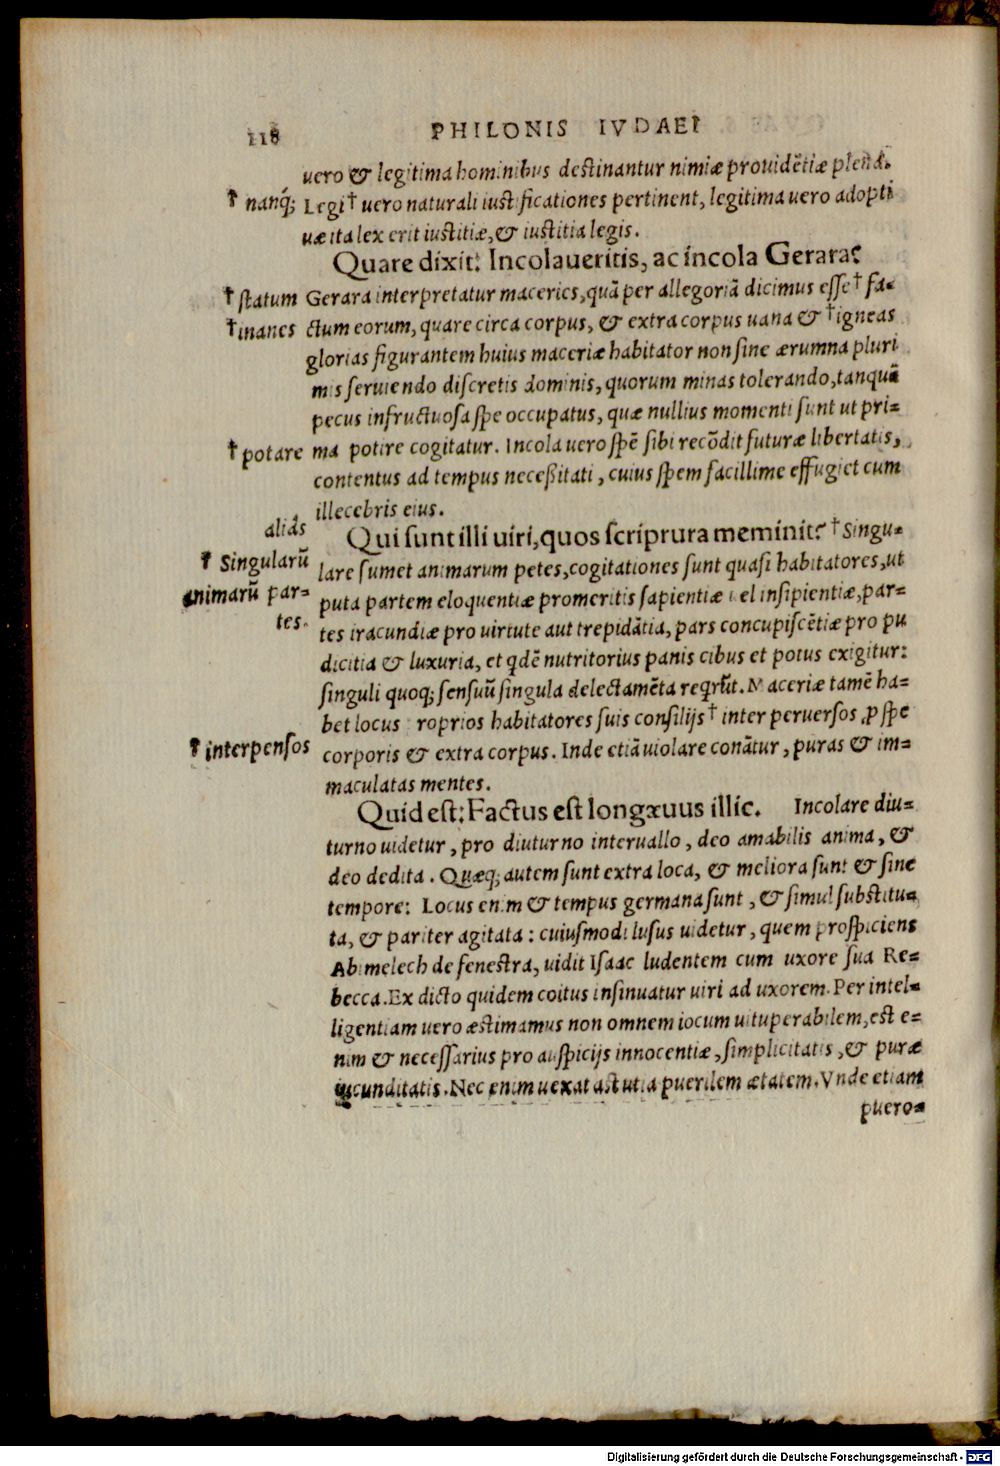 118 PHILONIS IVDAEI
uero & legitima hominibus destinantur nimiæ prouidẽtiæ plena.
† nanq́; Legi† uero naturali iustificationes pertinent, legitima uero adopti
uæ ita lex erit iustitiæ, & iustitia legis.
Quare dixit: Incolaueritis, ac incola Geraræ?
† statum Gerara interpretatur maceries, quã per allegoriã dicimus esse † fa-
† inanes ctum eorum, quare circa corpus, & extra corpus uana & † igneas
glorias figurantem huius maceriæ habitator non sine ærumna pluri
mis seruiendo discretis dominis, quorum minas tolerando, tanquã
pecus infructuosa spe occupatus, quæ nullius momenti sunt ut pri-
† potare ma potire cogitatur. Incola uero spẽ sibi recõdit futuræ libertatis,
contentus ad tempus neceßitati, cuius spem facillime effugiet cum
illecebris eius.
aliás
Qui sunt illi uiri, quos scriprura meminit? † Singu-
† Singularũ lare sumet animarum petes, cogitationes sunt quasi habitatores, ut
animarũ par- puta partem eloquentiæ promeritis sapientiæ uel insipientiæ, par-
tes. tes iracundiæ pro uirtute aut trepidãtia, pars concupiscẽtiæ pro pu
dicitia & luxuria, et qdẽ nutritorius panis cibus et potus exigitur:
singuli quoq; sensuũ singula delectamẽta reqrũt. Maceriæ tamẽ ha-
bet locus proprios habitatores suis consilijs † inter peruersos, ꝓ spe
† interpensos corporis & extra corpus. Inde etiã uiolare conãtur, puras & im-
maculatas mentes.
Quid est: Factus est longæuus illic. Incolare diu-
turno uidetur, pro diuturno interuallo, deo amabilis anima, &
deo dedita. Quæq; autem sunt extra loca, & meliora sunt & sine
tempore: Locus enim & tempus germana sunt, & simul substitu-
ta, & pariter agitata: cuiusmodi lusus uidetur, quem prospiciens
Abimelech de fenestra, uidit Isaac ludentem cum uxore sua Re-
becca. Ex dicto quidem coitus insinuatur uiri ad uxorem. Per intel-
ligentiam uero æstimamus non omnem iocum uituperabilem, est e-
nim & necessarius pro auspicijs innocentiæ, simplicitatis, & puræ
iucunditatis. Nec enim uexat astutia puerilem ætatem. Vnde etiam
puero-
Digitalisierung gefördert durch die Deutsche Forschungsgemeinschaft - DFG